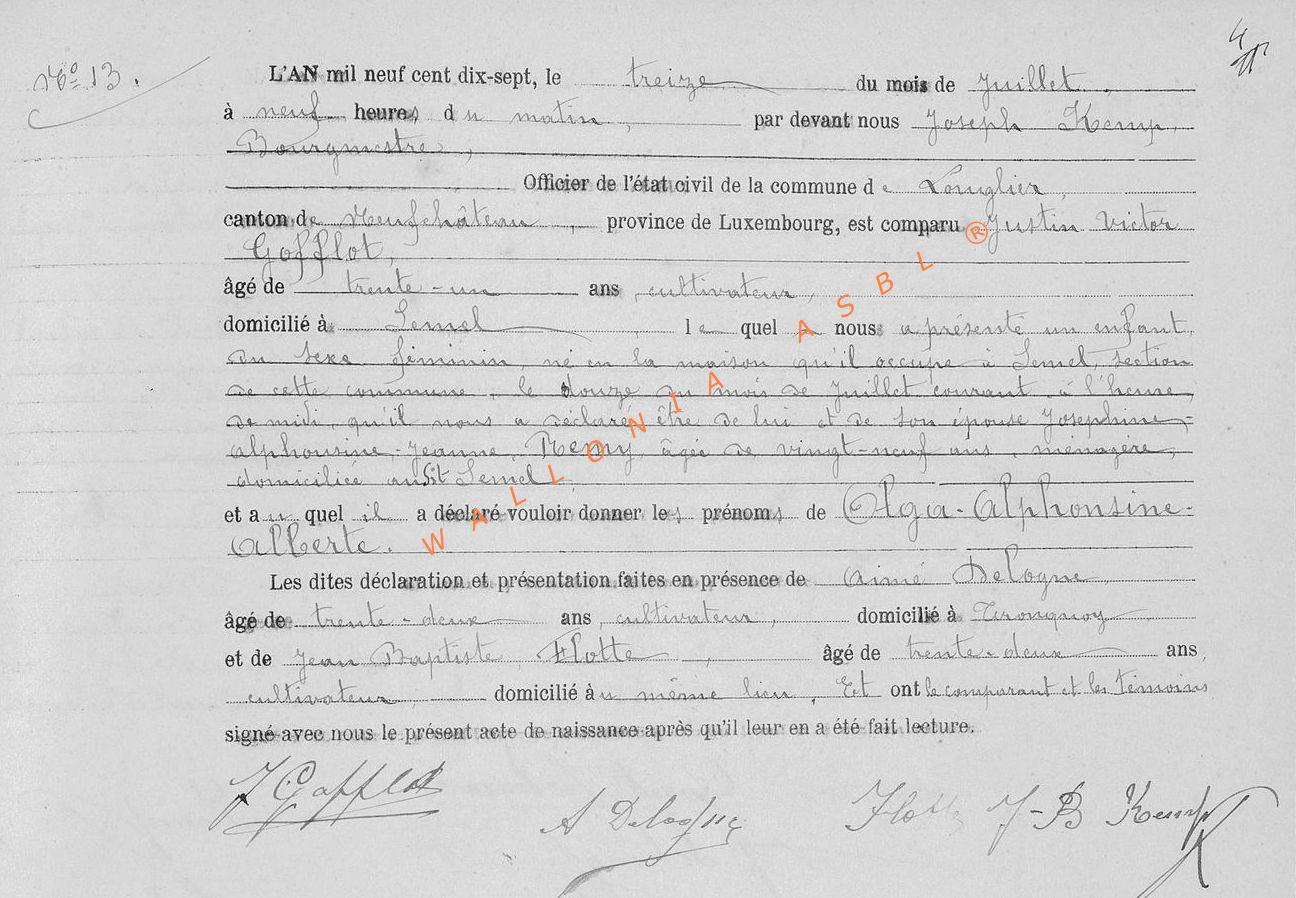 4
No 13.
L'AN mil neuf cent dix-sept, le treize du mois de Juillet,
à neuf heures du matin, par devant nous Joseph Kemp,
Bourgmestre,
Officier de l'état civil de la commune de Longlier,
canton de Neufchâteau, province de Luxembourg, est comparu Justin Victor
Gofflot,
âgé de trente-un ans, cultivateur,
domicilié à Lemel lequel nous a présenté un enfant
du sexe féminin, né en la maison qu'il occupe à Lemel, section
de cette commune, le douze du mois de Juillet courant à l'heure
de midi, qu'il nous a déclaré être de lui et de son épouse Joséphine-
Alphonsine-Jeanne Remy, âgée de vingt-neuf ans, ménagère,
domiciliée au dit Lemel,
et auquel il a déclaré vouloir donner les prénoms de Olga-Alphonsine-
Alberte.
Les dites déclaration et présentation faites en présence de Aimé Delogne,
âgé de trente-deux ans, cultivateur, domicilié à Tronquoy
et de Jean Baptiste Flotte, âgé de trente-deux ans,
cultivateur, domicilié au même lieu, Et ont le comparant et les témoins
signé avec nous le présent acte de naissance après qu'il leur en a été fait lecture.
J Gofflot A Delogne Flotte J-B Kemp
WALLONIA ASBL ®